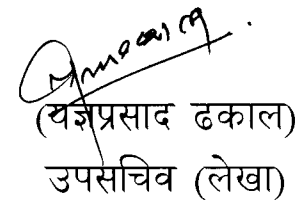 (यज्ञप्रसाद ढकाल)
उपसचिव (लेखा)